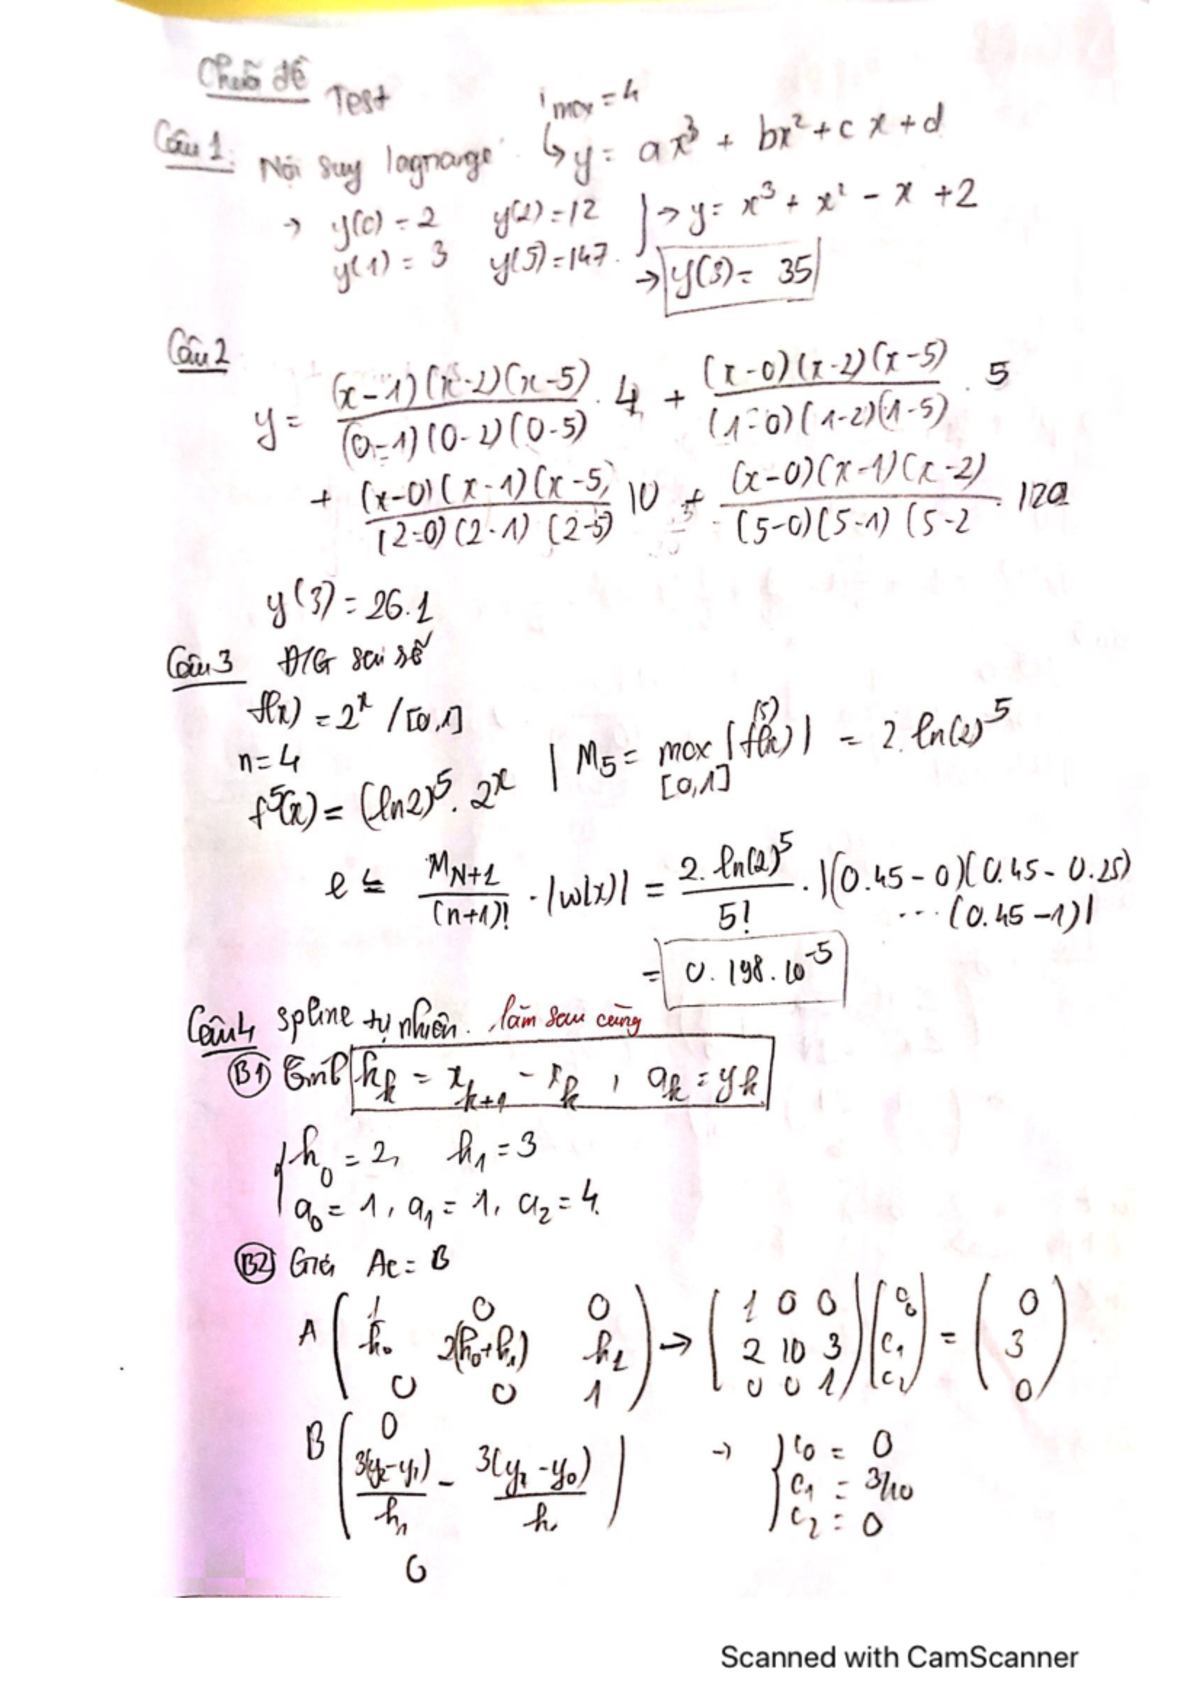 Chữa đề Test
Câu 1: Nội suy lagrange i max = 4
↳ y = ax³ + bx² + cx + d
→ y(0) = 2 y(2) = 12 } → y = x³ + x² - x + 2
y(1) = 3 y(5) = 147. → y(3) = 35
Câu 2
y = (x-1)(x-2)(x-5)/(0-1)(0-2)(0-5) . 4 + (x-0)(x-2)(x-5)/(1-0)(1-2)(1-5) . 5
+ (x-0)(x-1)(x-5)/(2-0)(2-1)(2-5) 10 + (x-0)(x-1)(x-2)/(5-0)(5-1)(5-2 . 120
y(3) = 26.1
Câu 3 ĐTG sai số
f(x) = 2ˣ / [0,1]
n = 4 | M₅ = max |f⁽⁵⁾(x)| = 2.ln(2)⁵
[0,1]
f⁵(x) = (ln2)⁵. 2ˣ
e ≤ M_{N+1}/(n+1)! . |w(x)| = 2.ln(2)⁵/5! . |(0.45-0)(0.45-0.25)
...(0.45-1)|
= 0.198.10⁻⁵
Câu 4 spline tự nhiên. làm sau cùng
B1 h_k = x_{k+1} - x_k , a_k = y_k
{ h₀ = 2, h₁ = 3
a₀ = 1, a₁ = 1, a₂ = 4.
B2 Giải Ac = B
A ( 1 0 0 ) → ( 1 0 0 ) ( c₀ ) = ( 0 )
( h₀ 2(h₀+h₁) h₁ ) ( 2 10 3 ) ( c₁ ) ( 3 )
( 0 0 1 ) ( 0 0 1 ) ( c₂ ) ( 0 )
B ( 0 ) → { c₀ = 0
3(y₂-y₁)/h₁ - 3(y₁-y₀)/h. c₁ = 3/10
0 c₂ = 0
Scanned with CamScanner